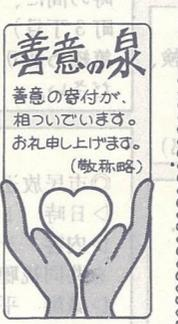 善意の泉
善意の寄付が、
相ついでいます。
お礼申し上げます。
(敬称略)